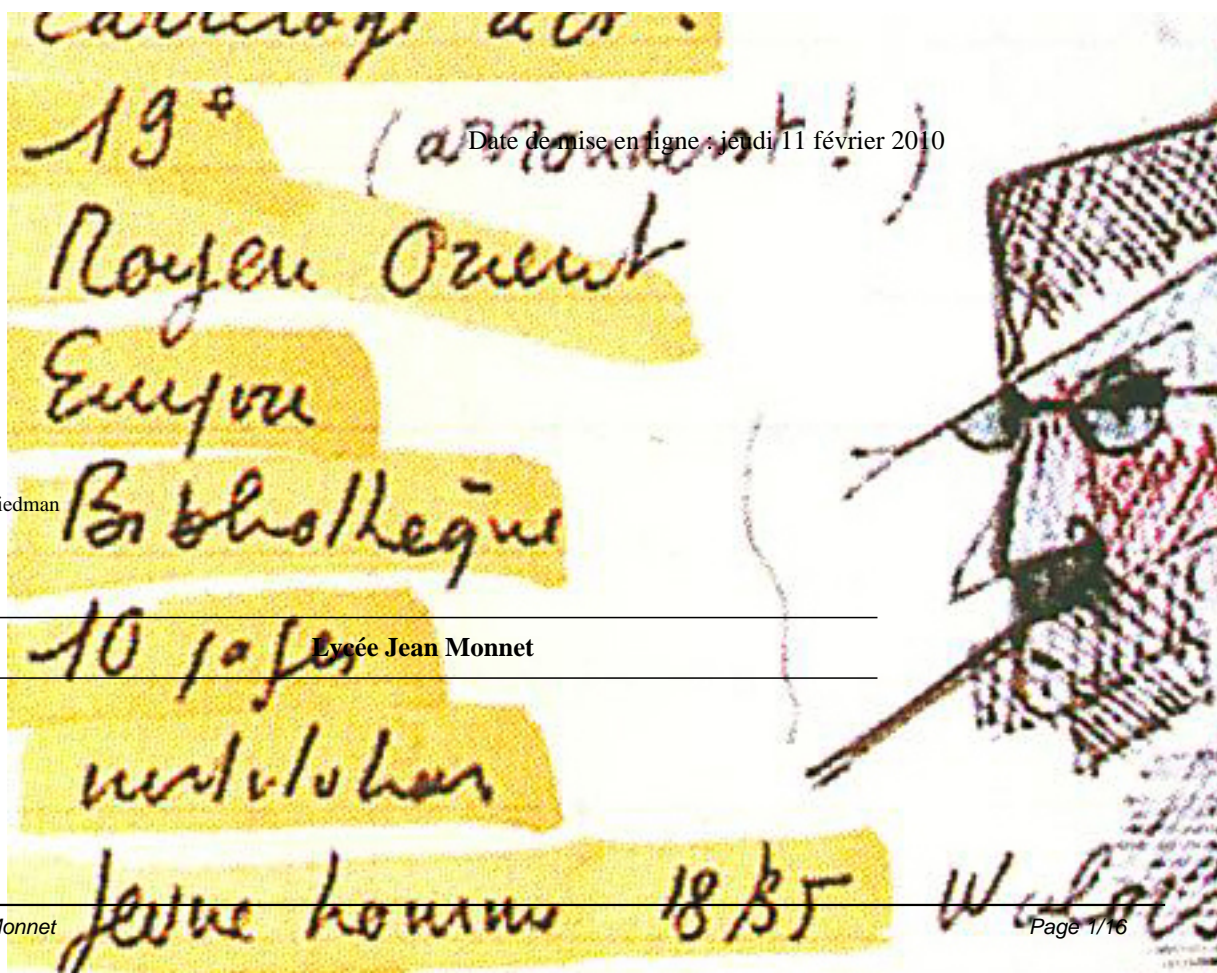 19°
(arrondissmt !)
Date de mise en ligne : jeudi 11 février 2010
Moyen Orient
Empire
iedman
Bibliothèque
10 pages
Lycée Jean Monnet
restitution
jeune homme 1885
Monnet
Page 1/16